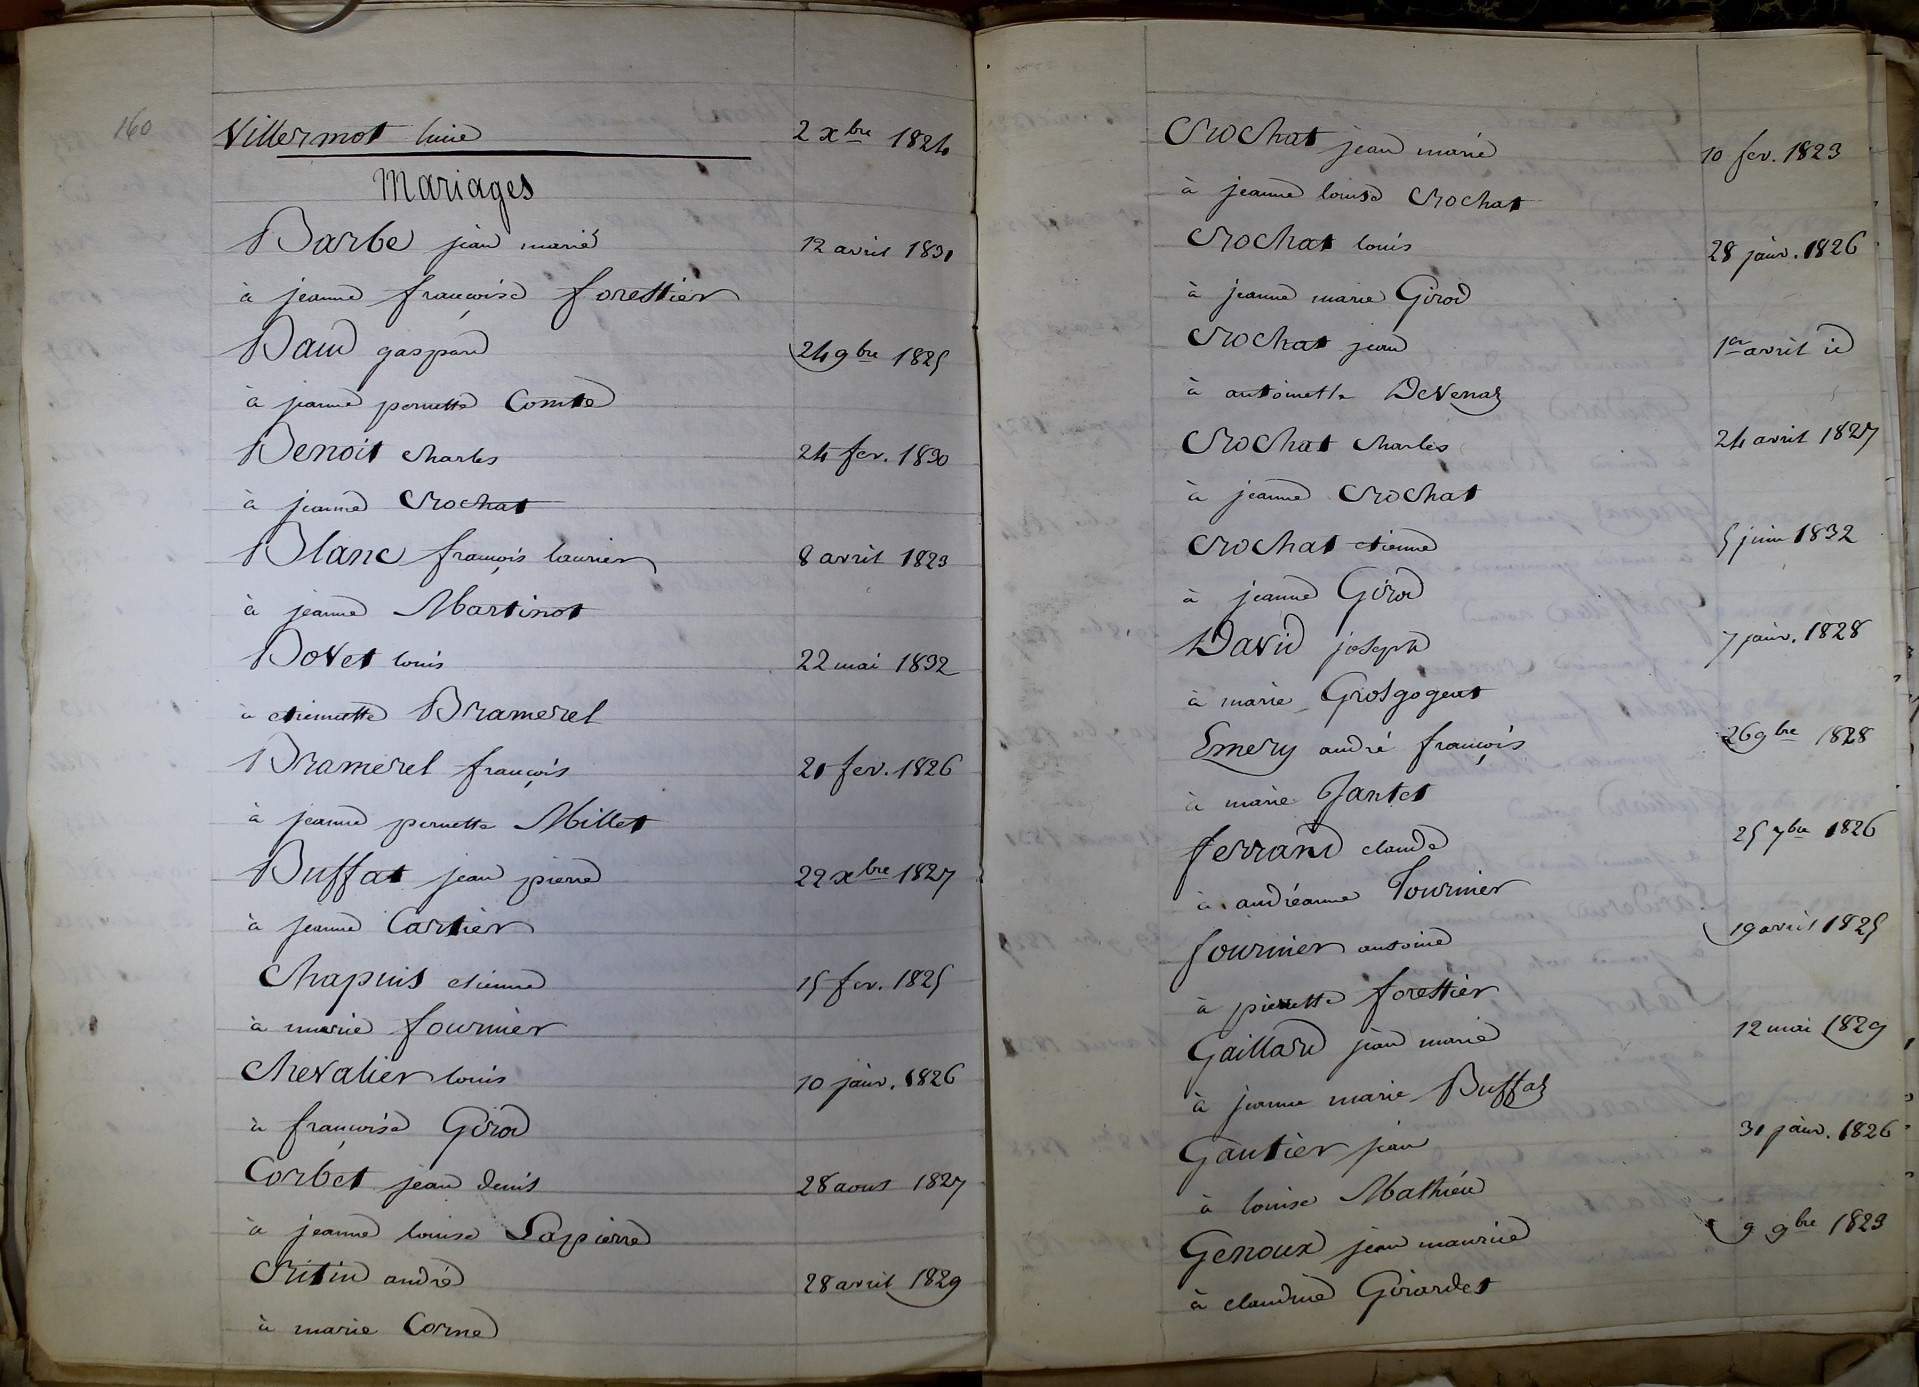 160
Villermot luïse 2 xbre 1824
Mariages
Barbe jean marie 12 avril 1831
à jeanne françoise forestier
Baud gaspard 24 9bre 1825
à jeanne pernette Comte
Benoit charles 24 fev. 1830
à jeanne Crochat
Blanc françois laurier 8 avril 1823
à jeanne Martinot
Bovet louis 22 mai 1832
à etiennette Bramerel
Bramerel françois 21 fev. 1826
à jeanne pernette Millet
Buffat jean pierre 22 xbre 1827
à jeanne Cartier
Chapuis etienne 15 fev. 1825
à marie fournier
Chevalier louis 10 janv. 1826
à françoise Girod
Corbet jean denis 28 aout 1827
à jeanne louise Lapierre
Critin andré 28 avril 1829
à marie Corne
Crochat jean marie 10 fev. 1823
à jeanne louise Crochat
Crochat louis 28 janv. 1826
à jeanne marie Girod
Crochat jean 1er avril id
à antoinette Devenaz
Crochat charles 24 avril 1827
à jeanne Crochat
Crochat etienne 5 juin 1832
à jeanne Girod
David joseph 7 janv. 1828
à marie Grosgogeat
Emery andré françois 26 9bre 1828
à marie Jantet
ferrand claude 25 7bre 1826
à andréanne Tournier
fournier antoine 19 avril 1825
à pierrette forestier
Gaillard jean marie 12 mai 1829
à jeanne marie Buffaz
Gautier jean 31 janv. 1826
à louise Mathieu
Genoux jean maurice 9 9bre 1823
à claudine Girardet